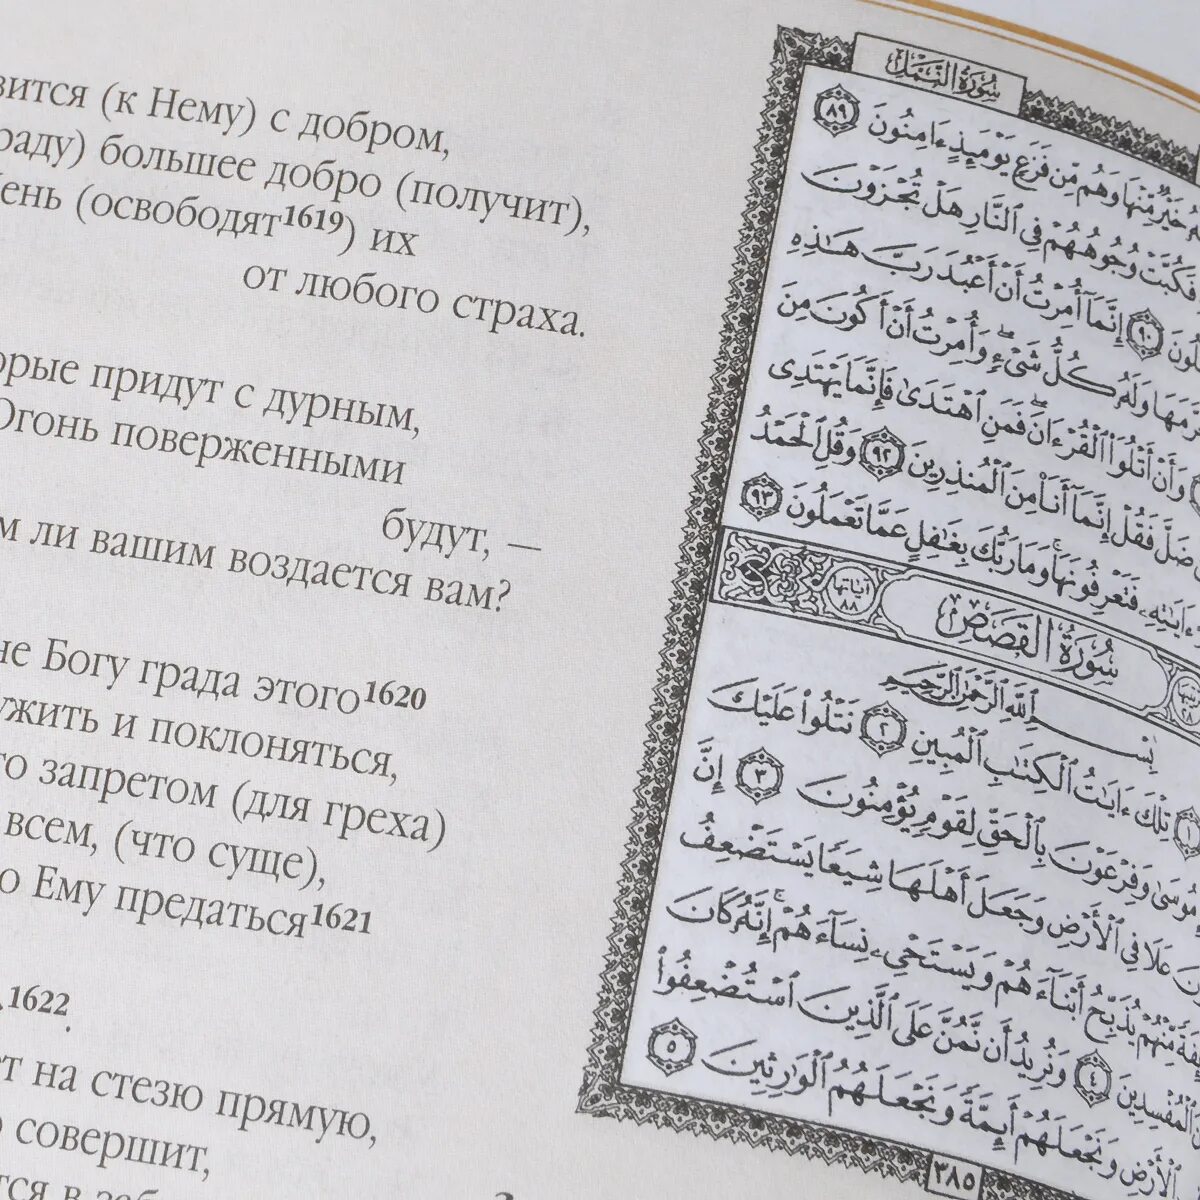 вится (к Нему) с добром,
раду) большее добро (получит),
ень (освободят1619) их
от любого страха.
орые придут с дурным,
Огонь поверженными
будут, —
м ли вашим воздается вам?
не Богу града этого1620
ужить и поклоняться,
го запретом (для греха)
всем, (что суще),
о Ему предаться1621
1622.
ет на стезю прямую,
о совершит,
тся в
سُورَةُ النَّمْلِ
خَيْرٌ مِّنْهَا وَهُم مِّن فَزَعٍ يَوْمَئِذٍ ءَامِنُونَ ٨٩
فَكُبَّتْ وُجُوهُهُمْ فِي النَّارِ هَلْ تُجْزَوْنَ
٩٠ إِنَّمَا أُمِرْتُ أَنْ أَعْبُدَ رَبَّ هَٰذِهِ
وَلَهُ كُلُّ شَيْءٍ وَأُمِرْتُ أَنْ أَكُونَ مِنَ
وَأَنْ أَتْلُوَا الْقُرْءَانَ فَمَنِ اهْتَدَىٰ فَإِنَّمَا يَهْتَدِي
ضَلَّ فَقُلْ إِنَّمَا أَنَا مِنَ الْمُنذِرِينَ ٩٢ وَقُلِ الْحَمْدُ
ءَايَٰتِهِ فَتَعْرِفُونَهَا وَمَا رَبُّكَ بِغَٰفِلٍ عَمَّا تَعْمَلُونَ ٩٣
سُورَةُ القَصَصِ
اياتها ٨٨
بِسْمِ اللَّهِ الرَّحْمَٰنِ الرَّحِيمِ
١ تِلْكَ ءَايَٰتُ الْكِتَٰبِ الْمُبِينِ ٢ نَتْلُوا عَلَيْكَ
مُوسَىٰ وَفِرْعَوْنَ بِالْحَقِّ لِقَوْمٍ يُؤْمِنُونَ ٣ إِنَّ
عَلَا فِي الْأَرْضِ وَجَعَلَ أَهْلَهَا شِيَعًا يَسْتَضْعِفُ
مِّنْهُمْ يُذَبِّحُ أَبْنَاءَهُمْ وَيَسْتَحْيِ نِسَاءَهُمْ إِنَّهُ كَانَ
الْمُفْسِدِينَ ٤ وَنُرِيدُ أَن نَّمُنَّ عَلَى الَّذِينَ اسْتُضْعِفُوا
الْأَرْضِ وَنَجْعَلَهُمْ أَئِمَّةً وَنَجْعَلَهُمُ الْوَارِثِينَ ٥
٣٨٥